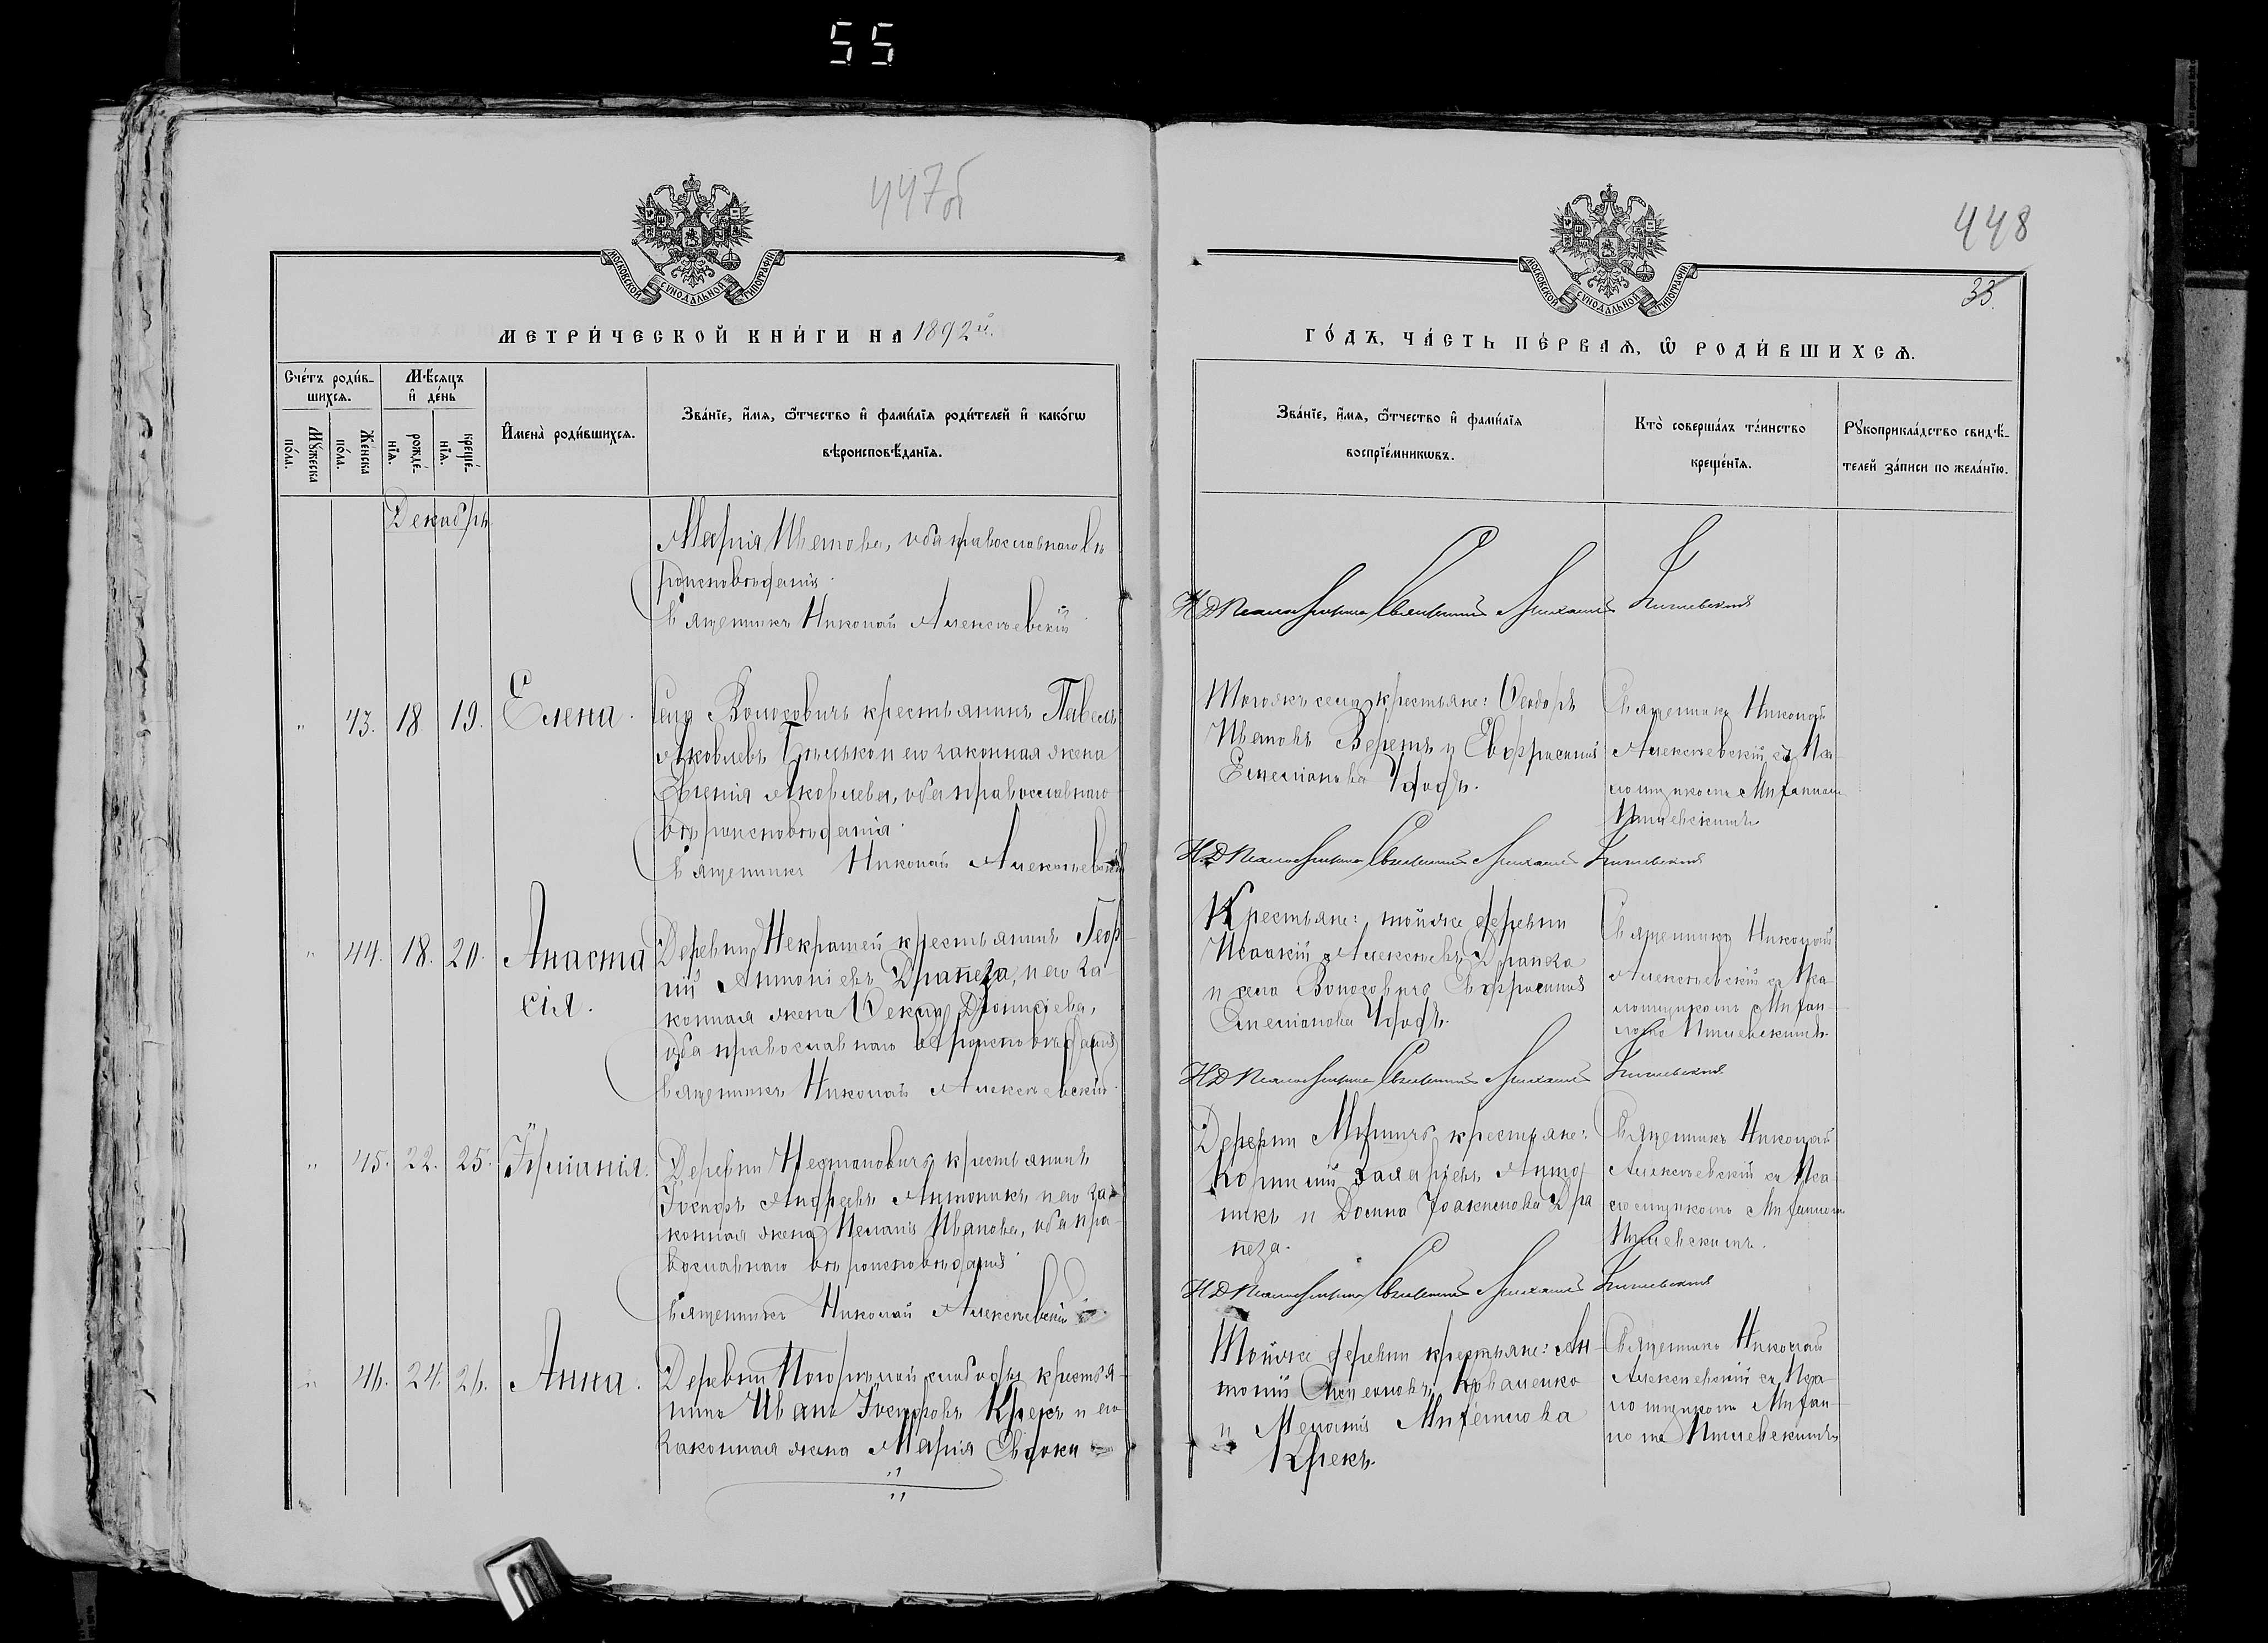 55
447об
МОСКОВСКОЙ СУНОДАЛЬНОЙ ТИПОГРАФІИ
МЕТРИ́ЧЕСКОЙ КНИ́ГИ НА 1892й.
Сче́тъ роди́в-
шихсѧ.
Мꙋ́жеска
по́ла.
Же́нска
по́ла.
Мѣ́сѧцъ
и де́нь
рожде́-
нїѧ.
креще́-
нїѧ.
И҆мена̀ роди́вшихсѧ.
Зва́нїе, и҆́мѧ, ѻ҆́тчество и҆ фами́лїѧ роди́телей и҆ како́гѡ
вѣроисповѣ́данїѧ.
Декабрь
Марія Иванова, оба православнаго вѣ
роисповѣданія.
Священникъ Николай Алексѣевскій
" 43. 18. 19. Елена.
Села Волосовичъ крестьянинъ Павелъ
Яковлевъ и его законная жена
Евгенія Яковлева, оба православнаго
вѣроисповѣданія.
Священникъ Николай Алексѣевскій
" 44. 18. 20. Анаста
сія.
Деревни Некрашей крестьянинъ Геор-
гій Антоніевъ Драпеза, и его за
конная жена Ѳекла Діонисіева,
оба православнаго вѣроисповѣданія
Священникъ Николай Алексѣевскій.
" 45. 22. 25. Іуліанія.
Деревни крестьянинъ
Андреевъ Антоникъ и его за-
конная жена Меланія Иванова, оба пра-
вославнаго вѣроисповѣданія
Священникъ Николай Алексѣевскій
" 46. 24. 26. Анна.
Деревни слободы крестья-
нинъ Иванъ Крекъ и его
законная жена Марія Евдоки
448
33.
МОСКОВСКОЙ СУНОДАЛЬНОЙ ТИПОГРАФІИ
ГО́ДЪ, ЧА́СТЬ ПЕ́РВАѦ, Ѡ҆ РОДИ́ВШИХСѦ.
Зва́нїе, и҆́мѧ, ѻ҆́тчество и҆ фами́лїѧ
воспрїе́мникѡвъ.
Кто̀ соверша́лъ та́инство
креще́нїѧ.
Рꙋкоприкла́дство свидѣ́-
телей за́писи по жела́нїю.
И Д Псаломщика Михаилъ
Тогожъ села крестьяне: Ѳеодоръ
Ивановъ Веретъ и Евфросинія
Емеліанова
Священникъ Николай
Алексѣевскій съ Пса-
ломщикомъ Михаиломъ
И Д Псаломщика Михаилъ
Крестьяне: тойже деревни
Исаакій Алексѣевъ Драпеза
и села Волосовичъ Евфросинія
Емеліанова
Священникъ Николай
Алексѣевскій съ Пса-
ломщикомъ Михаи-
ломъ
И Д Псаломщика Михаилъ
Деревни крестьяне:
Корнилій Захаріевъ Анто
никъ и Домна Іоакимова Дра
пеза.
Священникъ Николай
Алексѣевскій съ Пса-
ломщикомъ Михаиломъ
И Д Псаломщика Михаилъ
Тойже деревни крестьяне: Ан-
тоній
и Меланія
Крекъ.
Священникъ Николай
Алексѣевскій съ Пса-
ломщикомъ Михаи-
ломъ